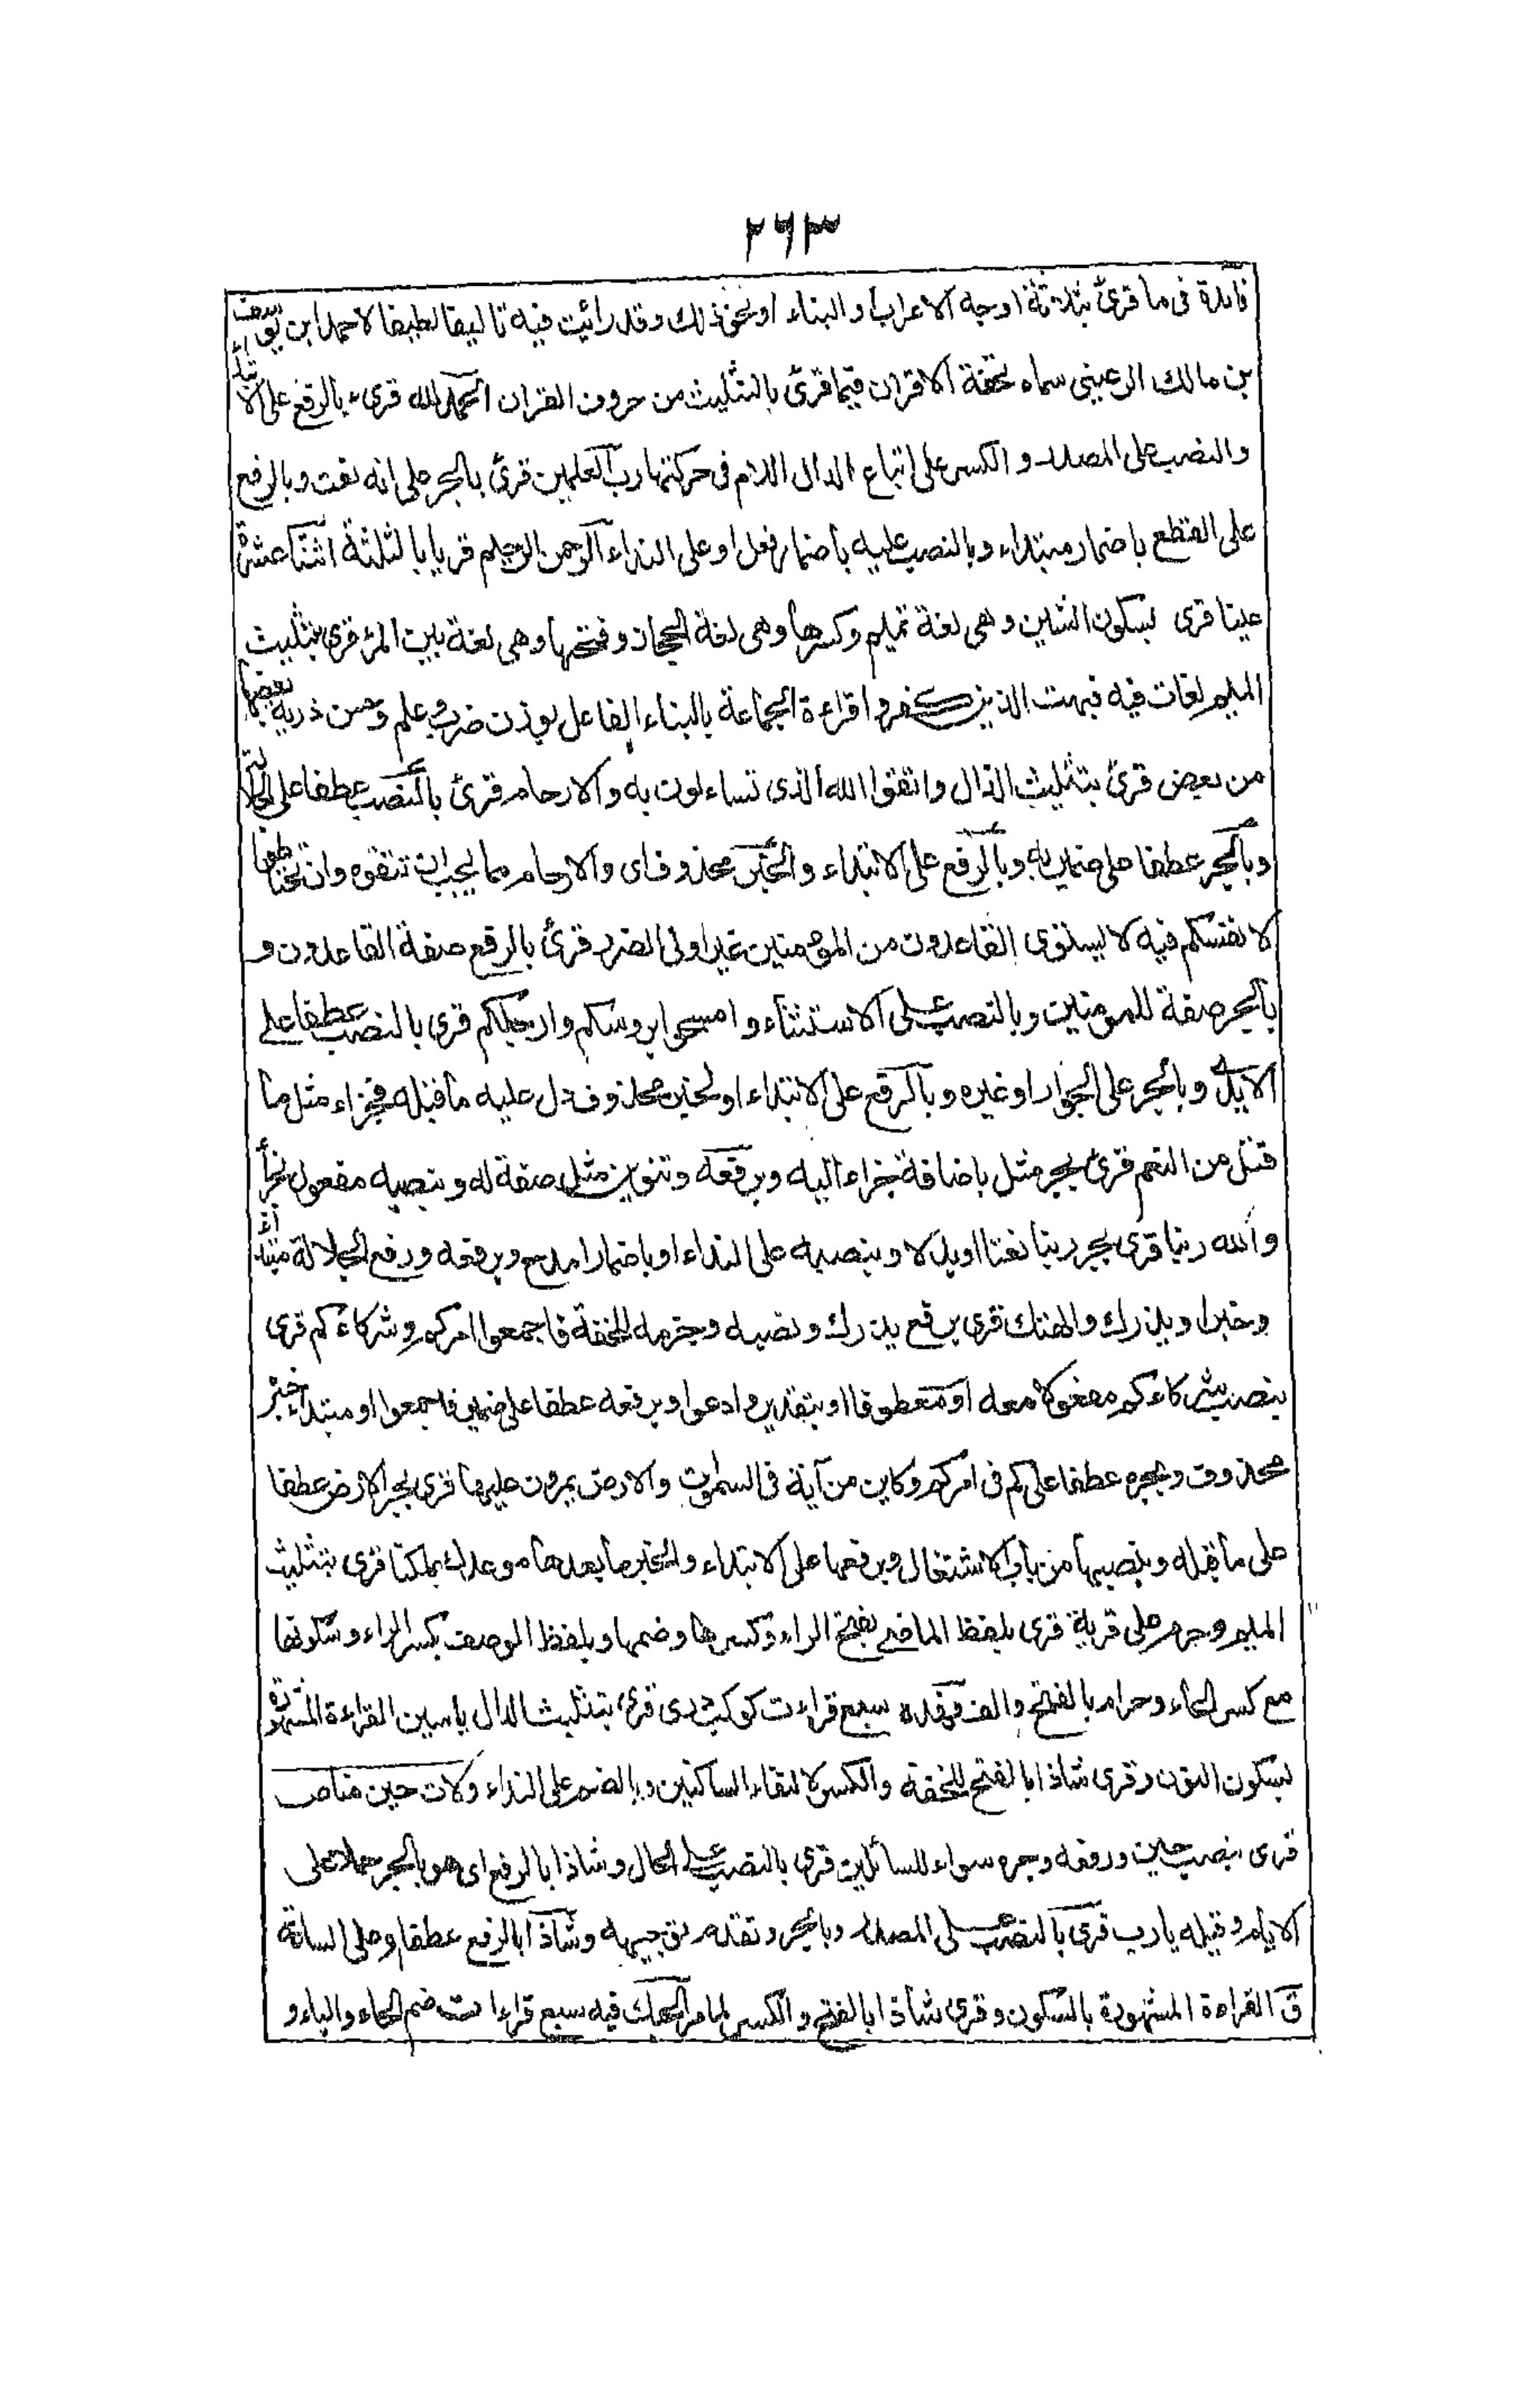 ٢٦٣
فائدة فى ما قرئ بثلاثة اوجه الاعراب او البناء او نحو ذلك وقد رائيت فيه تاليفا لطيفا لاحمد ابن يوسف
بن مالك الرعينى سماه تحفة الاقران فيما قرئ بالتثليث من حروف القران الحمد لله قرئ بالرفع على الابتداء
والنصب على المصدر و الكسر على اتباع الدال اللام فى حركتها رب العلمين قرئ بالجر على انه نعت وبالرفع
على القطع باضمار مبتداء وبالنصب عليه باضمار فعل او على النداء الرحمن الرحيم قريا بالثلثة اثنتا عشرة
عينا قرى بسكون الشين وهى لغة تميم وكسرها وهى لغة الحجاز وفتحها وهى لغة بين المرء قرى بتثليث
الميم لغات فيه فبهت الذين كفروا قراءة الجماعة بالبناء الفاعل بوزن ضرب وعلم وحسن ذرية بعضها
من بعض قرئ بتثليث الذال واتقوا الله الذى تساءلون به والارحام قرئ بالنصب عطفا على الجلالة
وبالجر عطفا على ضمير به وبالرفع على الابتداء والخبر محذوف اى والارحام مما يجب ان تتقوه وان تحتاطوا
لانفسكم فيه لا يستوى القاعدون من المومنين غير اولى الضرر قرئ بالرفع صفة القاعدون و
بالجر صفة للمومنين وبالنصب على الاستثناء وامسحوا بروسكم وارجلكم قرى بالنصب عطفا على
الايدى وبالجر على الجوار او غيره وبالرفع على الابتداء او لخبر محذوف دل عليه ما قبله فجزاء مثل ما
قتل من النعم قرئ بجر مثل باضافة جزاء اليه وبرفعه وتنوين مثل صفة له وبنصبه مفعول بجزاء
والله ربنا قرى بجر ربنا نعتا او بدلا وبنصبه على النداء او باضمار امدح وبرفعه ورفع الجلالة مبتداء
وخبرا ويذرك والهتك قرى برفع يذرك ونصبه وجزمه للخفة فاجمعوا امركم وشركاءكم قرى
بنصب شركاءكم مفعولا معه او معطوفا او بتقدير وادعوا وبرفعه عطفا على ضمير فاجمعوا او مبتداء خبر
محذوف وبجره عطفا على كم فى امركم وكاين من آية فى السموات والارض يمرون عليها قرى بجر الارض عطفا
على ما قبله وبنصبها من باب الاشتغال وبرفعها على الابتداء والخبر ما بعدها موعدك بملكنا قرى بتثليث
الميم وحرم على قرية قرى بلفظ الماضى بفتح الراء وكسرها وضمها وبلفظ الوصف بكسر الراء وسكونها
مع كسر الحاء وحرام بالفتح والف فهذه سبع قراءت كوكب درى قرئ بتثليث الدال ياسين القراءة المشهورة
بسكون النون وقرى شاذا بالفتح للخفة والكسر لالتقاء الساكنين وبالضم على النداء ولات حين مناص
قرى بنصب حين ورفعه وجره سواء للسائلين قرى بالنصب على الحال وشاذا بالرفع اى هو بالجر حملا على
الايام وقيله يارب قرى بالنصب على المصدر وبالجر وتقدم توجيهه وشاذا بالرفع عطفا وعلى الساعة
ق القراءة المشهورة بالسكون وقرى شاذا بالفتح والكسر لمامر الحبك فيه سبع قراءات ضم الحاء والباء و